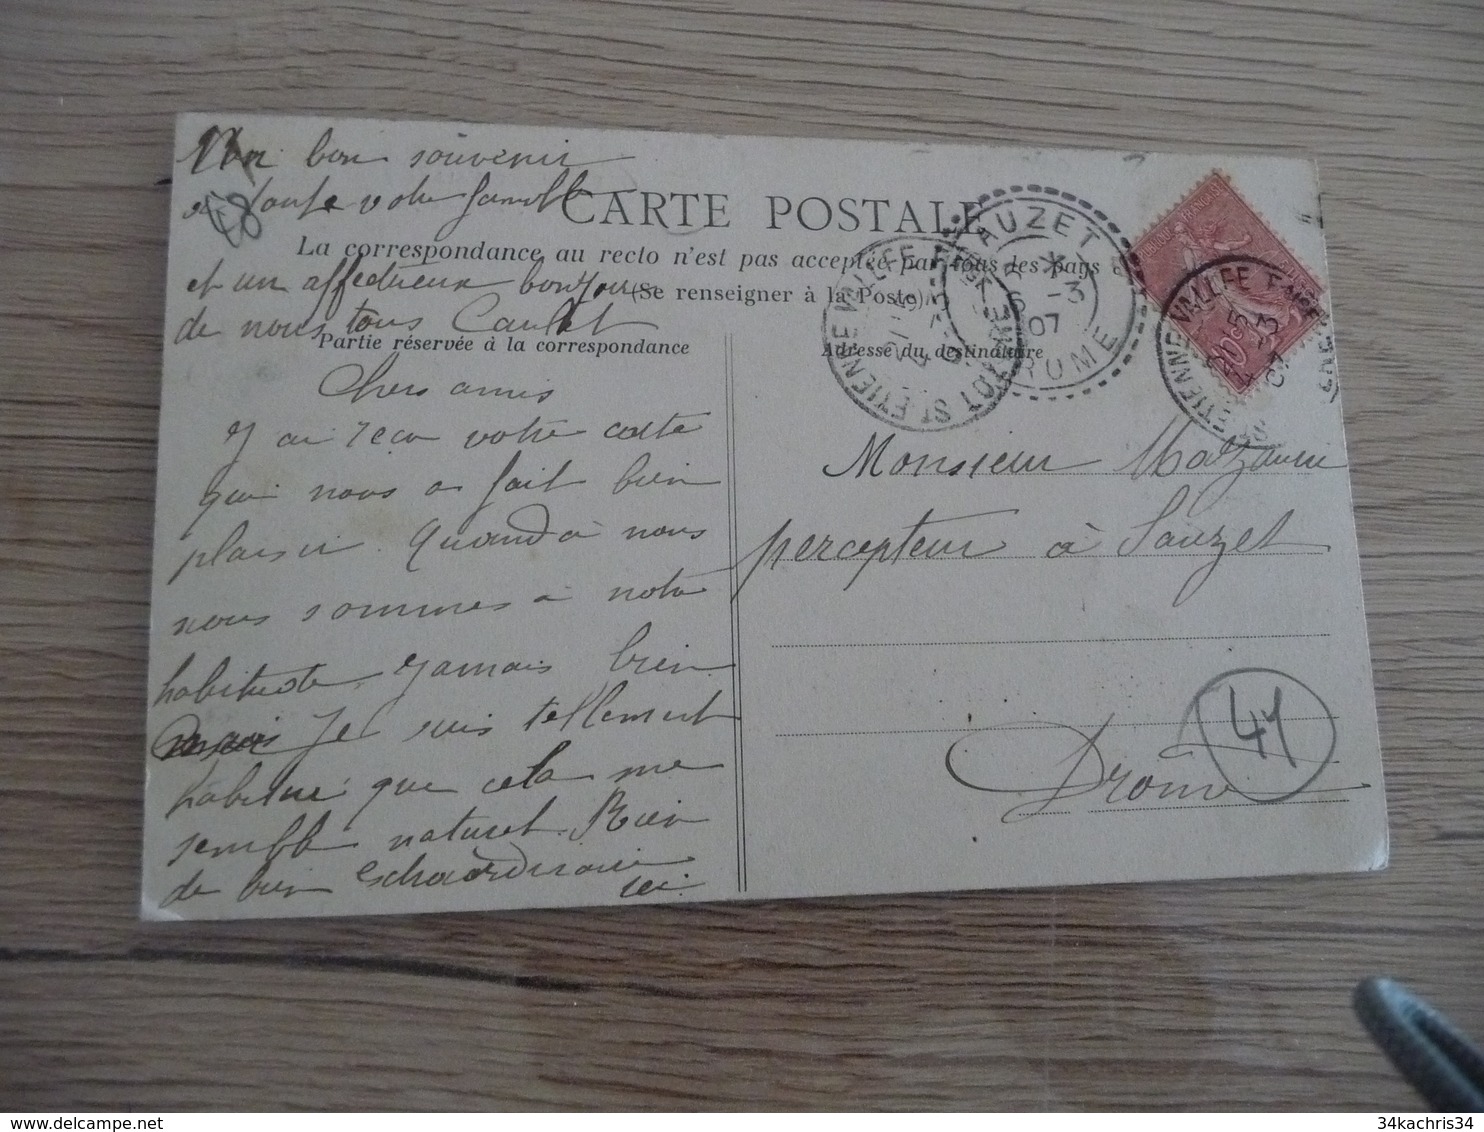 Mon bon souvenir
à toute votre famille
et un affectueux bonjour
de nous tous Caulet
CARTE POSTALE
La correspondance au recto n'est pas acceptée par tous les pays
(Se renseigner à la Poste)
Partie réservée à la correspondance
Adresse du destinataire
Chers amis
J ai reçu votre carte
qui nous a fait bien
plaisir. Quand à nous
nous sommes à notre
habitude, jamais bien
mais je suis tellement
habitué que cela me
semble naturel. Rien
de bien extraordinaire
ici.
SAUZET
DROME
6 -3
07
LOT ST ETIENNE VALLEE FSE
ST ETIENNE VALLEE FSE
5 -3
07
Monsieur
percepteur à Sauzet
Drome
41
48
34kachris34